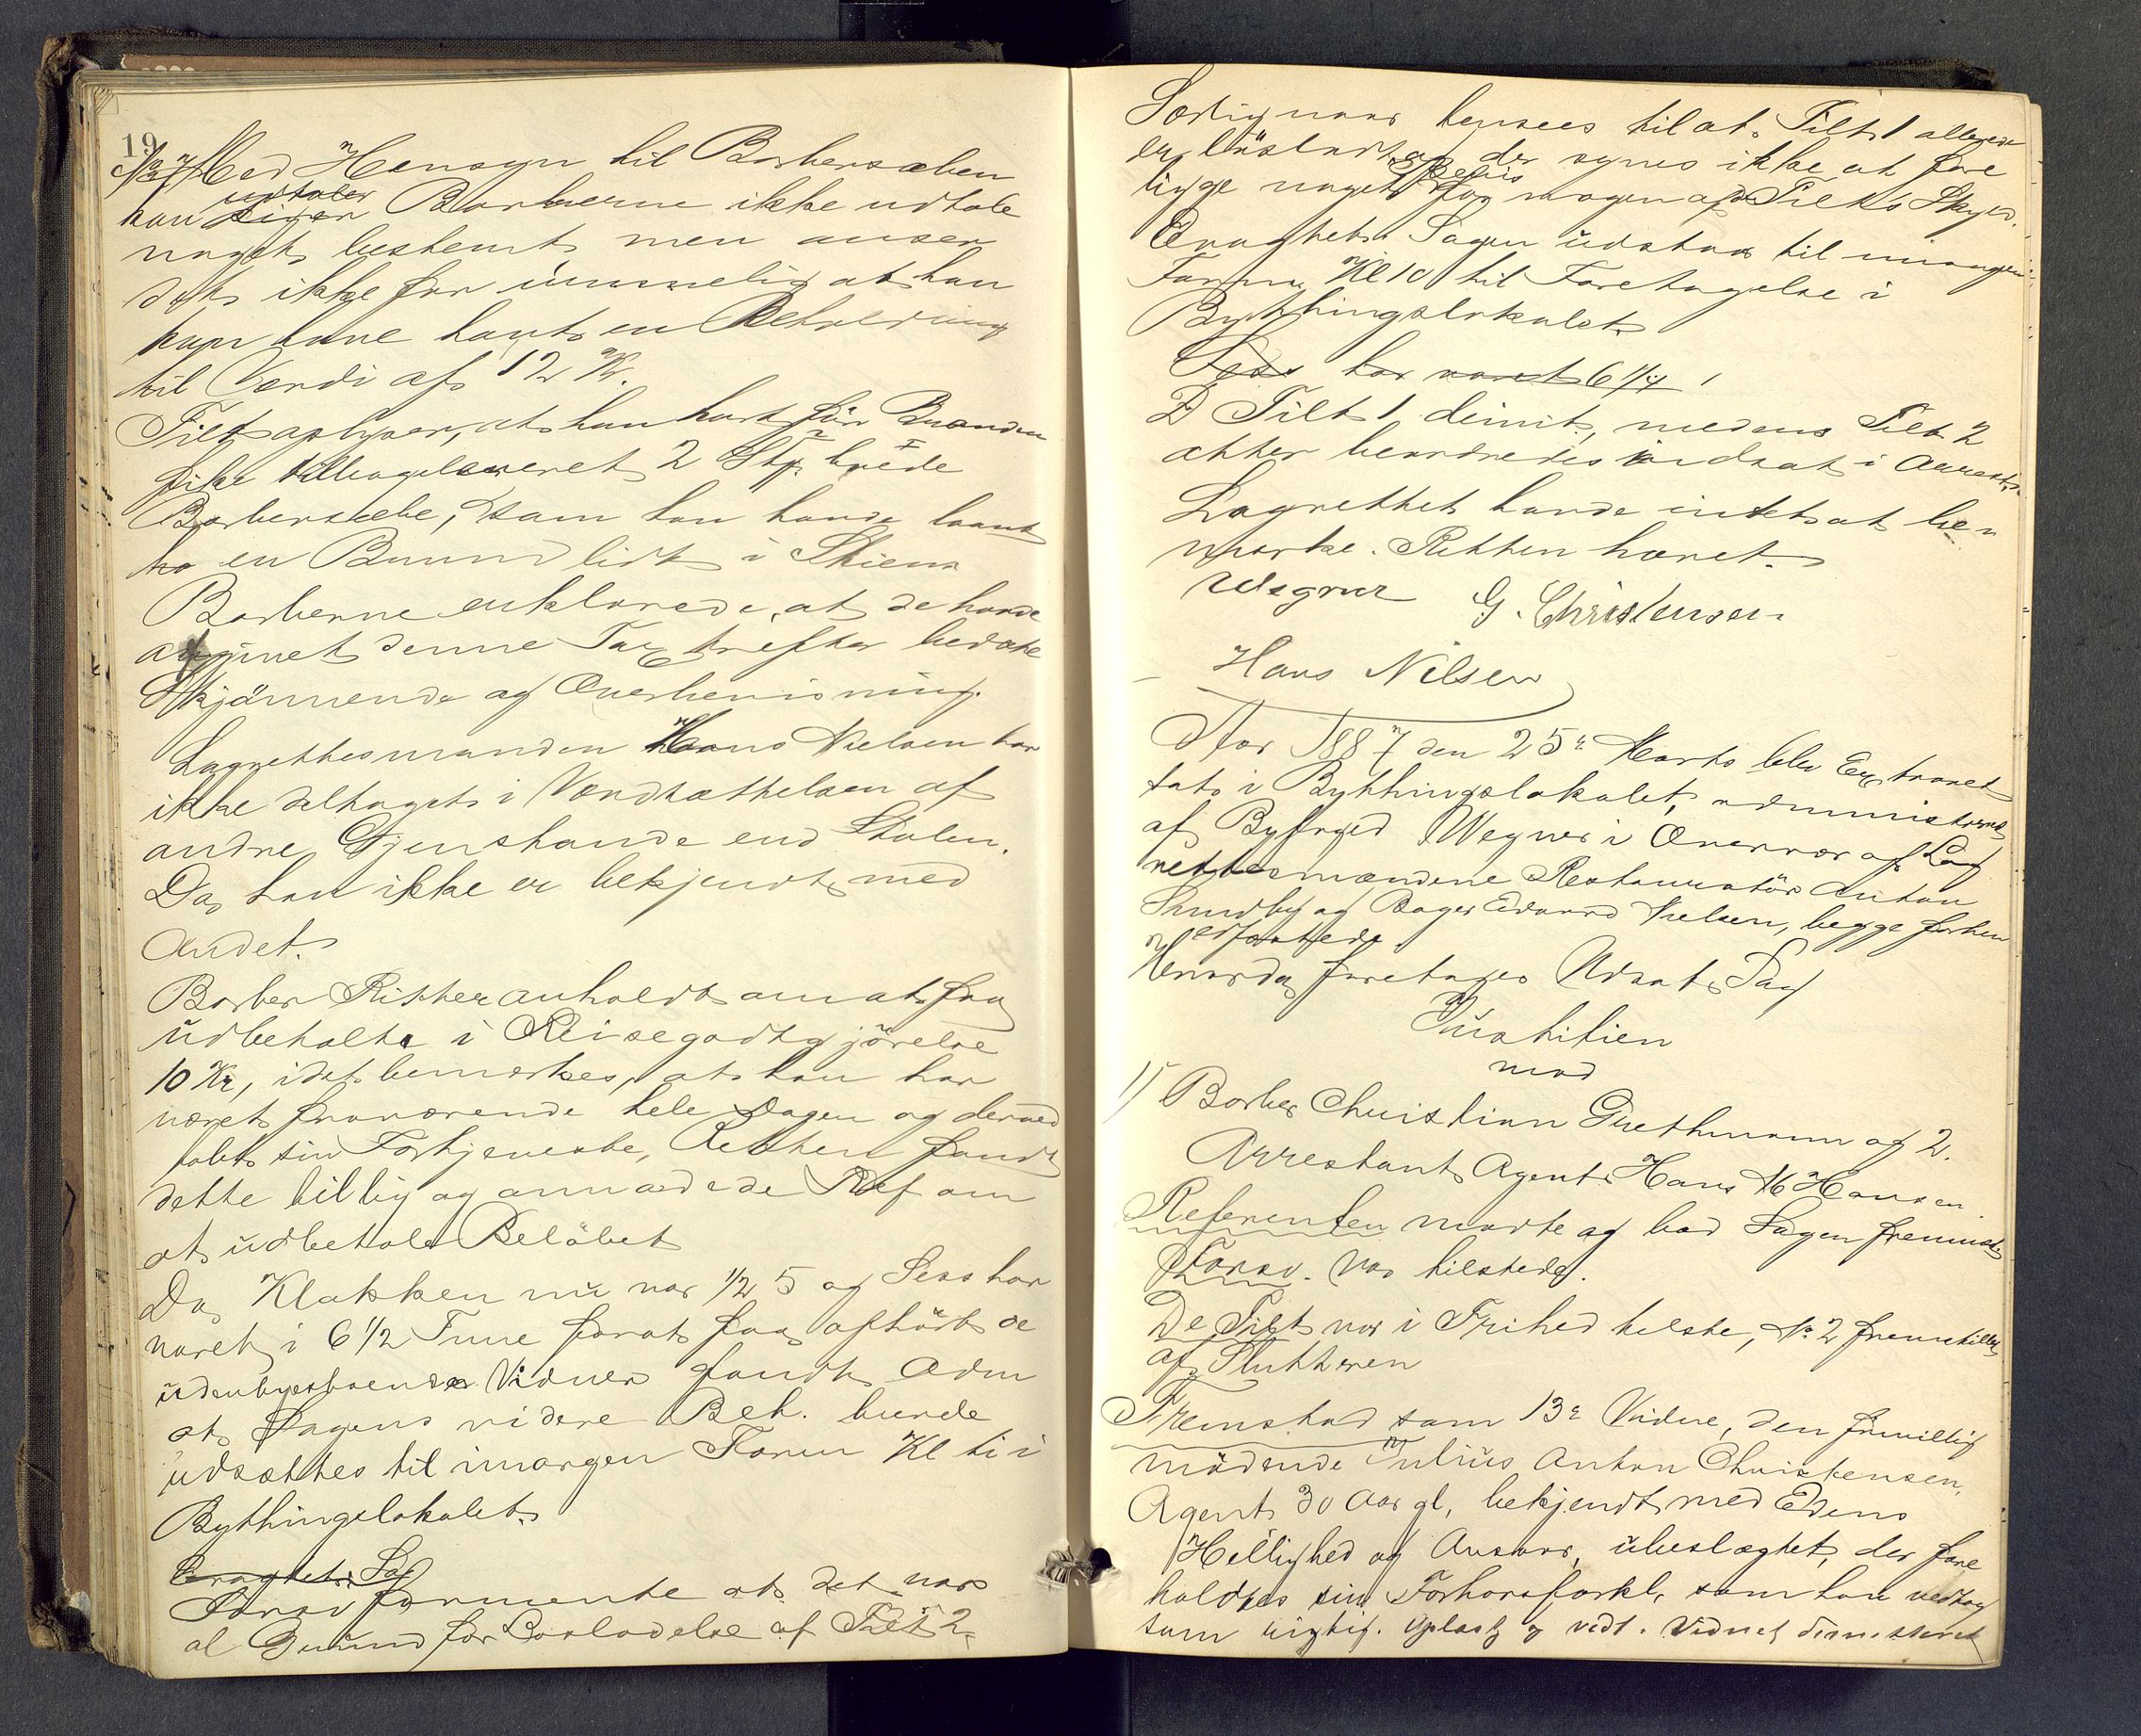 19
No 7 Med Hensyn til Barbersæben
udtaler
kan siger Barberne ikke udtale
noget bestemt, men anser
det ikke for umuelig at han
kan have havt en Beholdning
til Værdi af 12 Kr.
Tilt oplyser, at han kort før Branden
fik tilbageleveret 2 Stk hvide
Barbersæbe, som han havde laant
en Bruun lidt i Skien
Barberne erklærede, at de havde
afgivet denne Taxt efter bedste
Skjønnende og Overbevisning.
Lagrettesmanden Hans Nielsen har
ikke deltaget i Værdsættelsen af
andre Gjenstande end Stolen.
Da han ikke er bekjendt med
Andet.
Barber Ritter anholdt om at faa
udbetalt i Reisegodtgjørelse
10 Kr, idet bemærkes, at han har
været fraværende hele Dagen og derved
tabt sin Fortjeneste, Retten fandt
dette billig og anmodede Ref om
at udbetale Beløbet
Da Klokken nu var 1/2 5 og Sess har
varet i 6 1/2 Time forat faa afhørt de
udenbyesboende Vidner fandt Adm
at Sagens videre Beh. burde
udsættes til imorgen Form Kl ti i
Bythingslokalet.
Eragtet: Sag
Forsv formente at det var
al Grund for Løsladelse af Tilt 2,
Særlig naar hensees til at Tilt 1 allerede
er løsladt og der synes ikke at fore
specielt
ligge noget for nogen af Tiltes Skyld.
Eragtet: Sagen udstaar til imorgen
Form Kl 10 til Foretagelse i
Bythingslokalet
Sess har varet 6 1/4
D Tilt 1 dimit, medens Tilt 2
atter beordredes indsat i Arrest.
Lagrettet havde intet at be-
mærke. Retten hævet.
Wegner G. Christensen
Hans Nilsen
Aar 1887 den 25de Marts blev Extraret
sat i Bythingslokalet, administreret
af Byfoged Wegner i Overvær af Lag
rettesmændene Restauratør Anton
Sundby og Bager Edvard Nielsen, begge forhen
edfæstede
Hvorda foretages Udsat Sag
Justitien
mod
1) Barber Christian Grethmann og 2.
Arrestant Agent Hans M Hansen.
Referenten mødte og bad Sagen fremmet
Forsv. var tilstede.
De Tilt var i Frihed tilste, No 2 fremstillet
af Slutteren
Fremstod som 13de Vidne, den frivillig
mødende Julius Anton Christensen,
Agent 30 Aar gl, bekjendt med Edens
Hellighed og Ansvar, ubeslægtet, der fore
holdtes sin Forhørsforkl, som han vedtog
som rigtig. Oplæst og vedt. Vidnet dimitteret